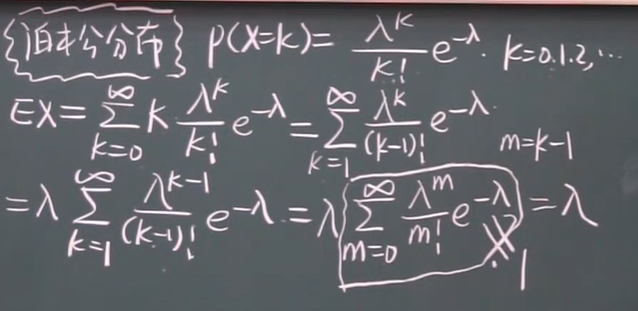 泊松分布 P(X=k)= λ^k/k! e^-λ. k=0.1.2,...
EX= ∑_{k=0}^{∞} k λ^k/k! e^-λ = ∑_{k=1}^{∞} λ^k/(k-1)! e^-λ. m=k-1
=λ ∑_{k=1}^{∞} λ^{k-1}/(k-1)! e^-λ = λ ∑_{m=0}^{∞} λ^m/m! e^-λ = λ
1